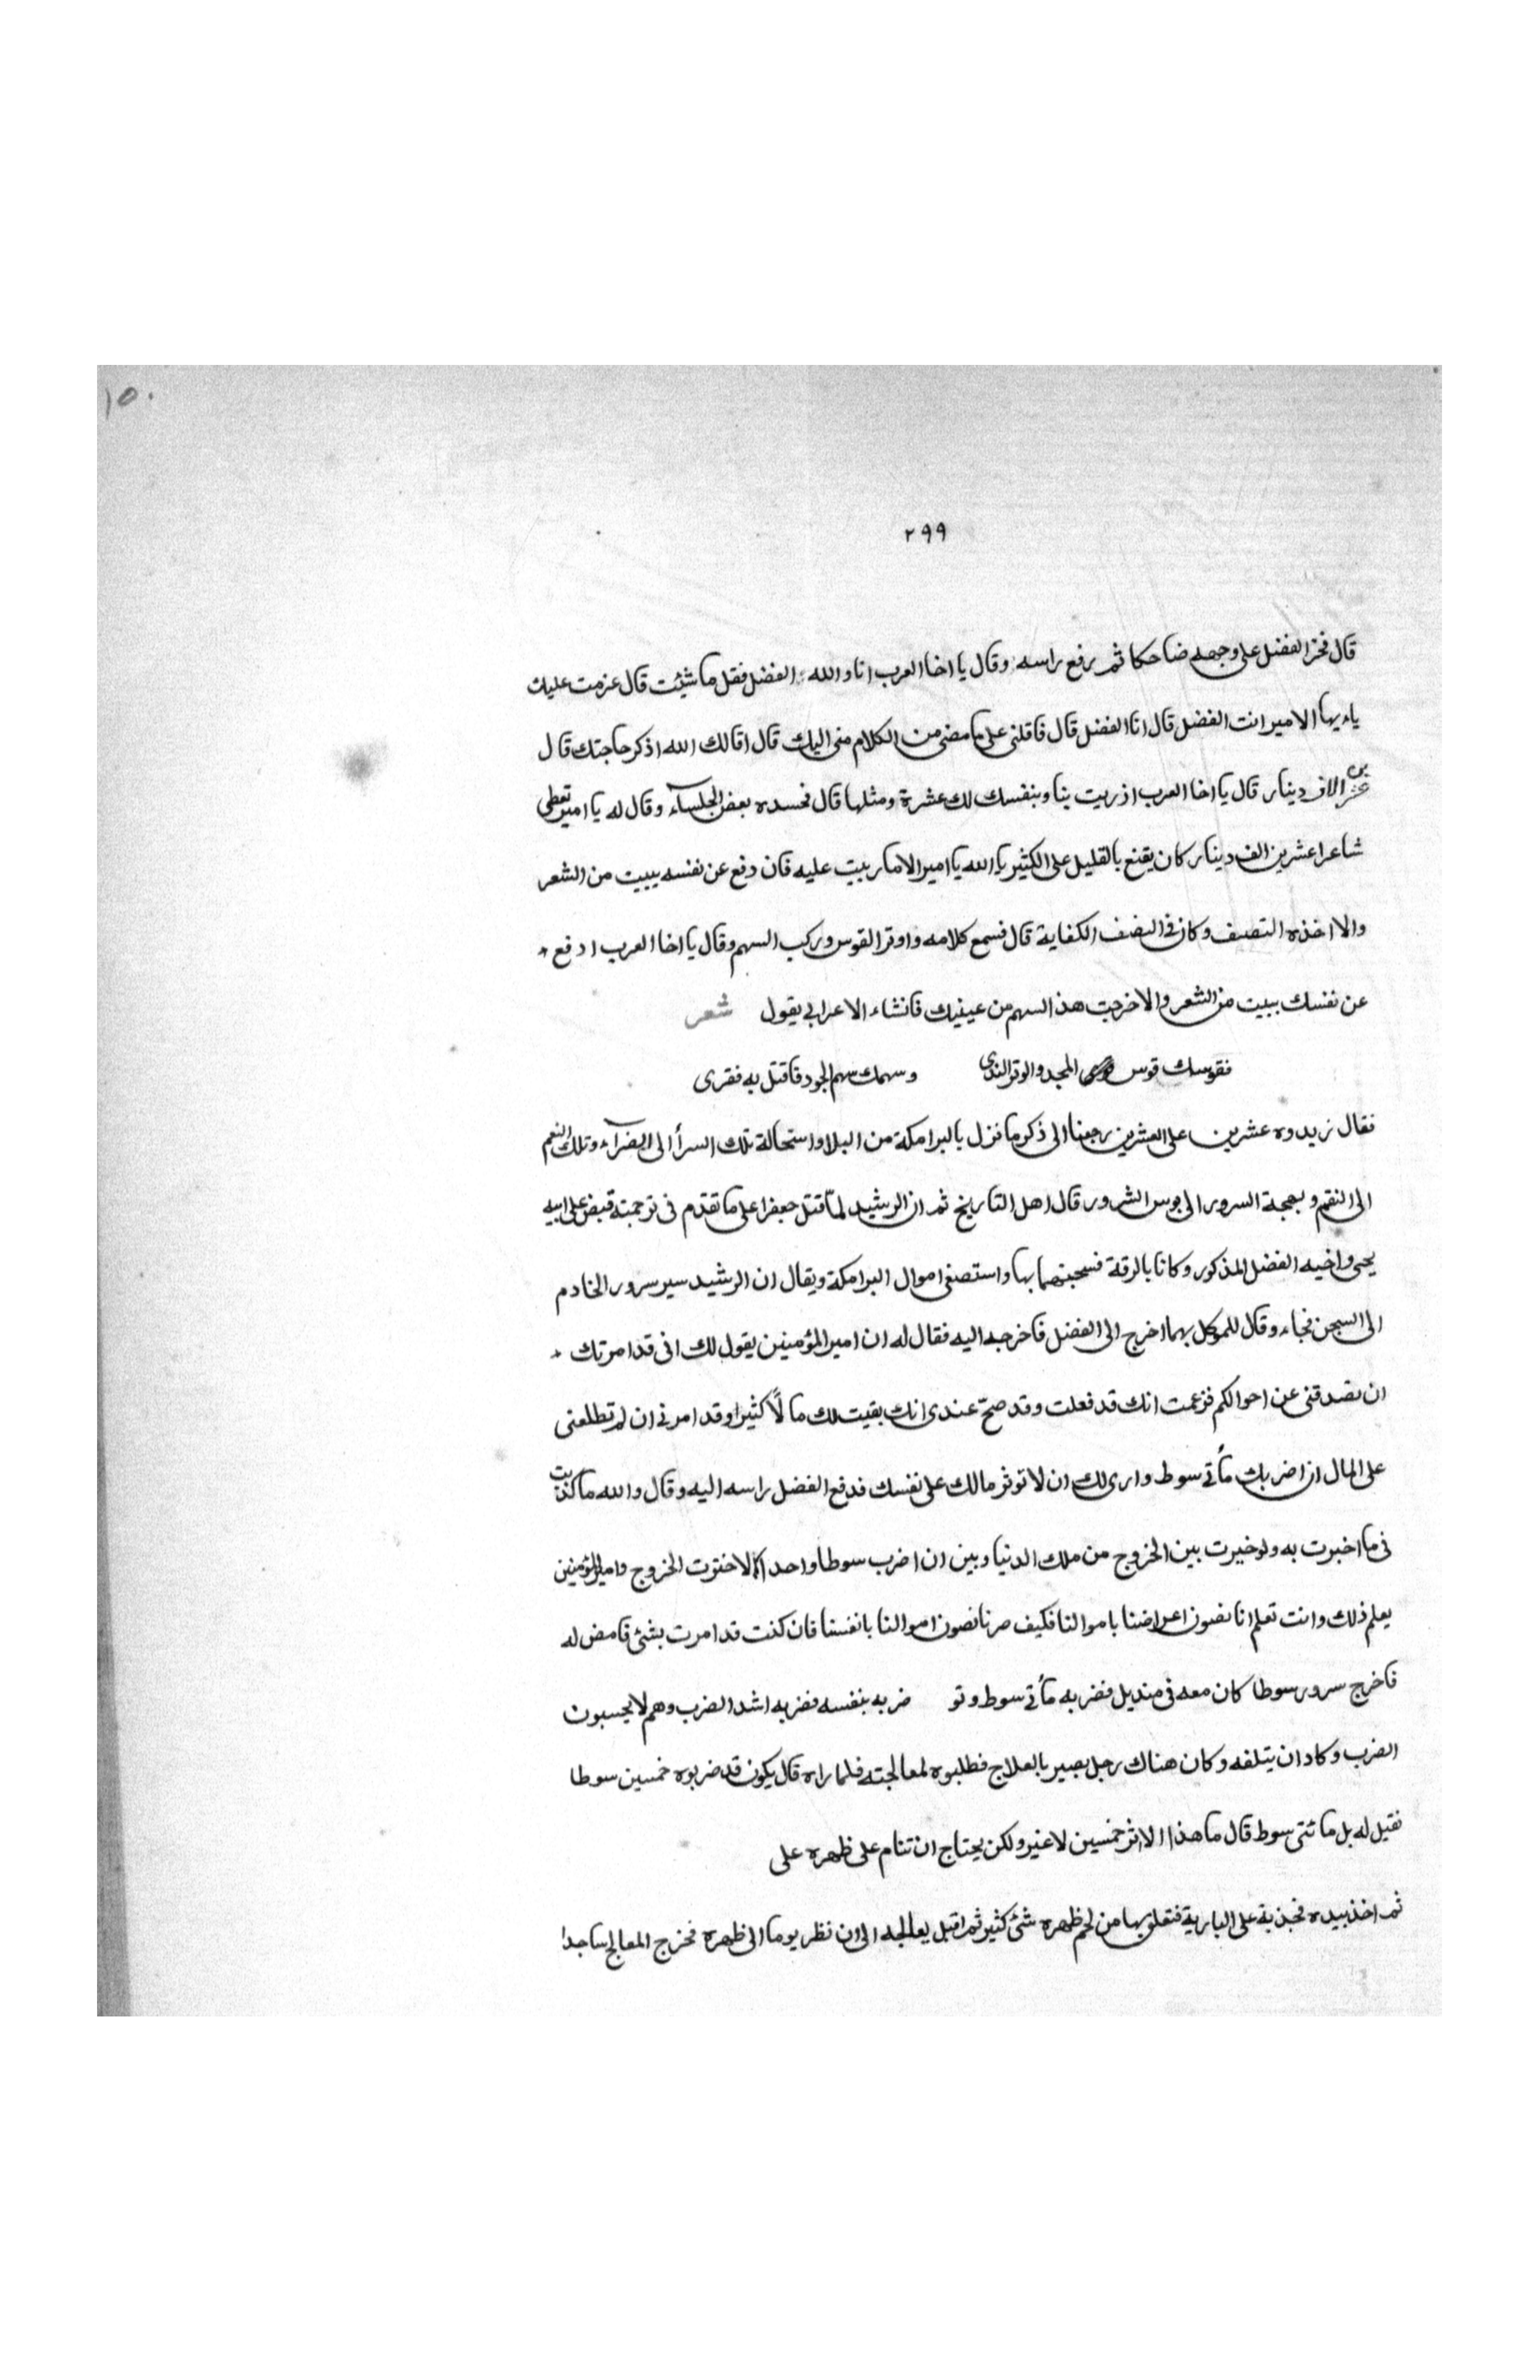 ١٥٠
٢٩٩
قال فخر الفضل على وجهه ضاحكا ثم رفع راسه وقال يا اخا العرب انا والله الفضل فقل ما شيئت قال عزمت عليك
ياءيها الامير انت الفضل قال انا الفضل قال فاقلنى على ما مضى من الكلام منى اليك قال اقالك الله اذكر حاجتك قال
عشرين الاف دينار قال يا اخا العرب ازريت بنا وبنفسك لك عشرة ومثلها قال فحسده بعض الجلساء وقال له يا امير تعطى
شاعرا عشرين الف دينار كان يقنع بالقليل على الكثير بالله يا امير الاما ببيت عليه فان دفع عن نفسه ببيت من الشعر
والا اخذه النصف وكان فى النصف الكفاية قال فسمع كلامه واوتر القوس وركب السهم وقال يا اخا العرب ادفع
عن نفسك ببيت من الشعر والا خرجت هذا السهم من عينيك فانشاء الاعرابي يقول شعر
فقوسك قوس المجد والوتر الندى وسهمك سهم الجود فاقتل به فقرى
فقال زيدوه عشرين على العشرين رجعنا الى ذكر ما نزل بالبرامكة من البلا واستحالة تلك السرأ الى الضراء وتلك النعم
الى النقم وبهجة السرور الى بوس الشرور قال اهل التاريخ ثم ان الرشيد لمّا قتل جعفرا على ما تقدم فى ترجمته قبض على ابيه
يحيى واخيه الفضل المذكور وكانا بالرقة فسجنهما بها واستصفى اموال البرامكة ويقال ان الرشيد سير سرور الخادم
الى السجن فجاء وقال للموكل بهما اخرج الى الفضل فاخرجه اليه فقال له ان امير المؤمنين يقول لك انى قد امرتك
ان تصدقنى عن احوالكم فزعمت انك قد فعلت وقد صحّ عندى انك بقيت لك مالًا كثيرا وقد امرنى ان لم تطلعنى
على المال ان اضربك مأتى سوط وارى لك ان لا توثر مالك على نفسك فدفع الفضل راسه اليه وقال والله ما كذبت
فى ما اخبرت به ولو خيرت بين الخروج من ملك الدنيا وبين ان اضرب سوطا واحدا لاختوت الخروج وامير المؤمنين
يعلم ذلك وانت تعلم انا نصون اعراضنا باموالنا فكيف صرنا نصون اموالنا بانفسنا فان كنت قد امرت بشئ فامض له
فاخرج سرور سوطا كان معه فى منديل فضربه مأتى سوط وتو ضربه بنفسه فضربه اشد الضرب وهم لا يحسبون
الضرب وكاد ان يتلفه وكان هناك رجل بصير بالعلاج فطلبوه لمعالجته فلما راه قال يكون قد ضربوه خمسين سوطا
فقيل له بل مائتى سوط قال ما هذا الا اثر خمسين لا غير ولكن يحتاج ان تنام على ظهره على
ثم اخذ بيده فجذبة على البارية فتعلق بها من لحم ظهره شئ كثير ثم اقبل يعالجه الى ان نظر يوما الى ظهره فخرج المعالج ساجدا